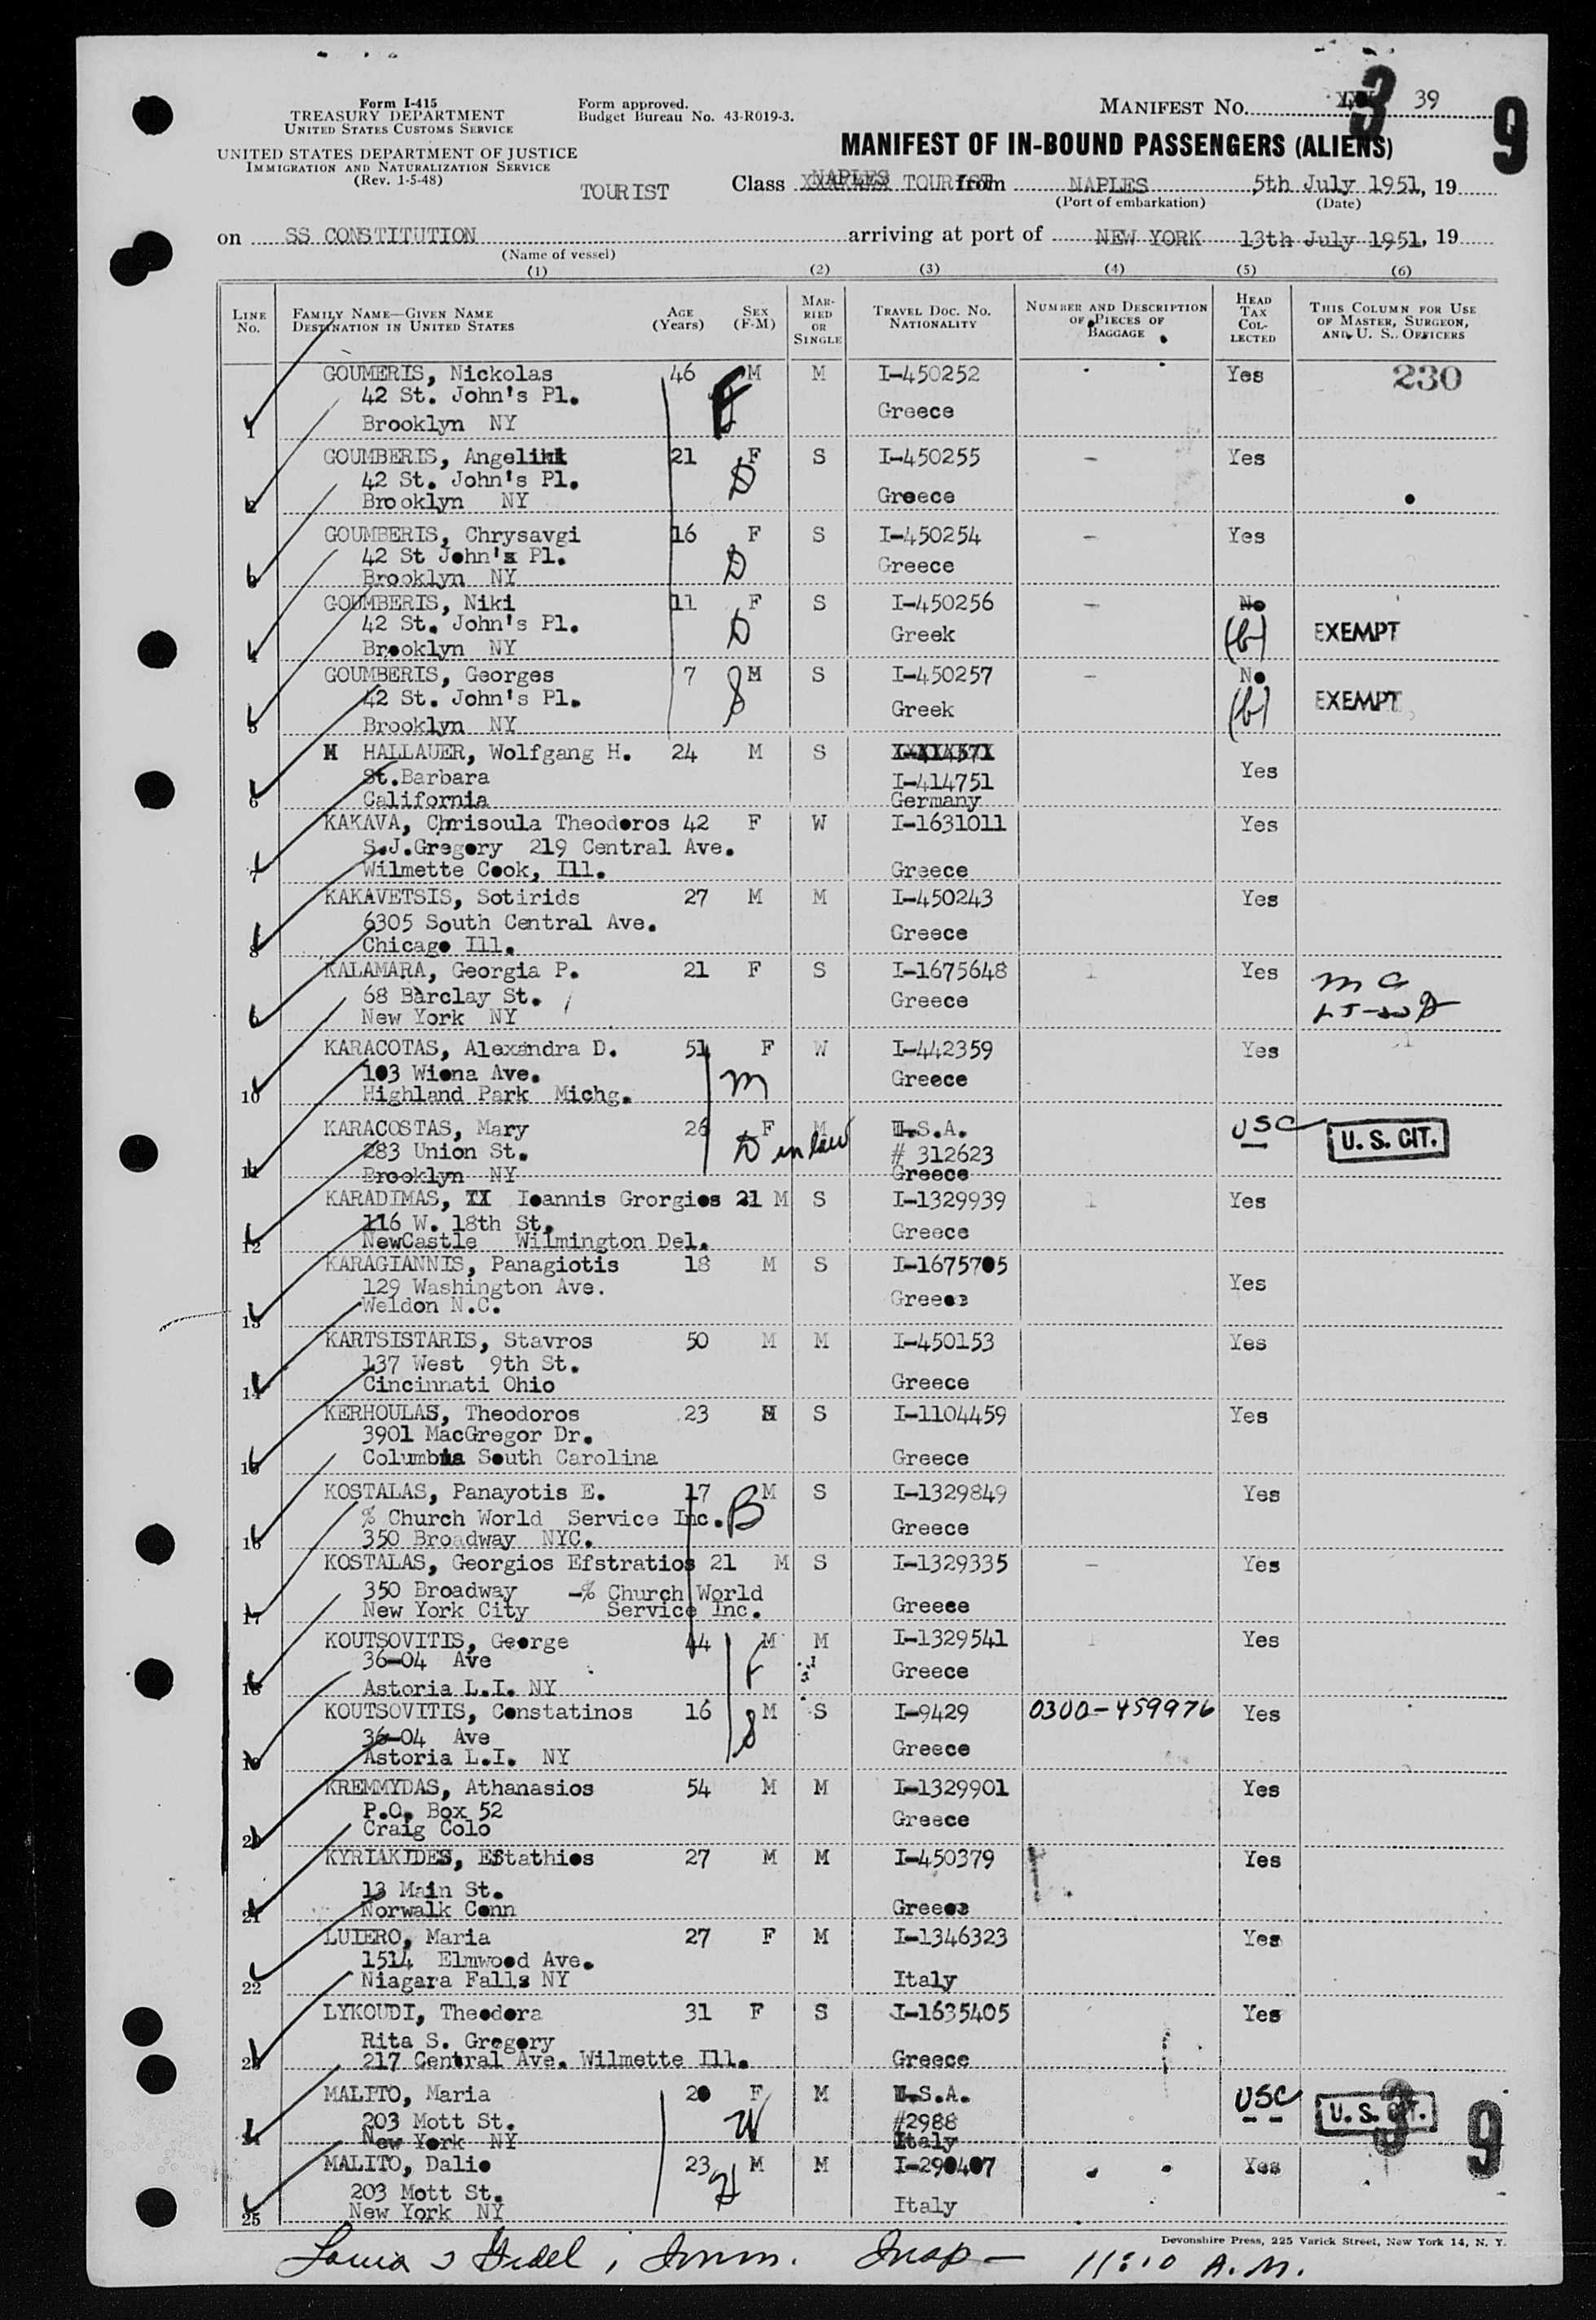 Form I-415
TREASURY DEPARTMENT
UNITED STATES CUSTOMS SERVICE
UNITED STATES DEPARTMENT OF JUSTICE
IMMIGRATION AND NATURALIZATION SERVICE
(Rev. 1-5-48)
Form approved.
Budget Bureau No. 43-R019-3.
MANIFEST NO. 39
3 9
MANIFEST OF IN-BOUND PASSENGERS (ALIENS)
TOURIST Class NAPLES TOURIST from NAPLES 5th July 1951, 19
(Port of embarkation) (Date)
on SS CONSTITUTION arriving at port of NEW YORK 13th July 1951, 19
(Name of vessel)
(1) (2) (3) (4) (5) (6)
LINE No. FAMILY NAME—GIVEN NAME DESTINATION IN UNITED STATES AGE (Years) SEX (F-M) MARRIED OR SINGLE TRAVEL DOC. NO. NATIONALITY NUMBER AND DESCRIPTION OF PIECES OF BAGGAGE HEAD TAX COLLECTED THIS COLUMN FOR USE OF MASTER, SURGEON, AND U. S. OFFICERS
GOUMERIS, Nickolas 46 M M I-450252 Yes 230
42 St. John's Pl. F
Greece
1 Brooklyn NY
GOUMBERIS, Angeliki 21 F S I-450255 - Yes
42 St. John's Pl. D
2 Brooklyn NY Greece
GOUMBERIS, Chrysavgi 16 F S I-450254 - Yes
42 St John's Pl. D Greece
3 Brooklyn NY
GOUMBERIS, Niki 11 F S I-450256 - No
42 St. John's Pl. D Greek (b) EXEMPT
4 Brooklyn NY
GOUMBERIS, Georges 7 M S I-450257 - No
42 St. John's Pl. S Greek (b) EXEMPT
5 Brooklyn NY
M HALLAUER, Wolfgang H. 24 M S
St.Barbara I-414751 Yes
6 California Germany
KAKAVA, Chrisoula Theodoros 42 F W I-1631011 Yes
S.J.Gregory 219 Central Ave.
7 Wilmette Cook, Ill. Greece
KAKAVETSIS, Sotirids 27 M M I-450243 Yes
6305 South Central Ave. Greece
8 Chicago Ill.
KALAMARA, Georgia P. 21 F S I-1675648 1 Yes
68 Barclay St. Greece
9 New York NY
KARACOTAS, Alexandra D. 51 F W I-442359 Yes
103 Wiona Ave. M Greece
10 Highland Park Michg.
KARACOSTAS, Mary 26 F M U.S.A. USC U. S. CIT.
283 Union St. D in law # 312623
11 Brooklyn NY Greece
KARADIMAS, II Ioannis Grorgios 21 M S I-1329939 1 Yes
116 W. 18th St. Greece
12 NewCastle Wilmington Del.
KARAGIANNIS, Panagiotis 18 M S I-1675705 Yes
129 Washington Ave. Greece
13 Weldon N.C.
KARTSISTARIS, Stavros 50 M M I-450153 Yes
137 West 9th St.
14 Cincinnati Ohio Greece
KERHOULAS, Theodoros 23 M S I-1104459 Yes
3901 MacGregor Dr.
15 Columbia South Carolina Greece
KOSTALAS, Panayotis E. 17 M S I-1329849 Yes
% Church World Service Inc. B Greece
16 350 Broadway NYC.
KOSTALAS, Georgios Efstratios 21 M S I-1329335 - Yes
350 Broadway -% Church World
17 New York City Service Inc. Greece
KOUTSOVITIS, George 44 M M I-1329541 1 Yes
36-04 Ave F Greece
18 Astoria L.I. NY
KOUTSOVITIS, Constatinos 16 M S I-9429 0300-459976 Yes
36-04 Ave S Greece
19 Astoria L.I. NY
KREMMYDAS, Athanasios 54 M M I-1329901 Yes
P.O. Box 52 Greece
20 Craig Colo
KYRIAKIDES, Efstathios 27 M M I-450379 Yes
13 Main St.
21 Norwalk Conn Greece
LUIERO, Maria 27 F M I-1346323 Yes
1514 Elmwood Ave.
22 Niagara Falls NY Italy
LYKOUDI, Theodora 31 F S I-1635405 Yes
Rita S. Gregory
23 217 Central Ave. Wilmette Ill. Greece
MALITO, Maria 20 F M U.S.A. USC U. S. CIT.
203 Mott St. W #2988 3 9
24 New York NY Italy
MALITO, Dalio 23 M M I-290407 Yes
203 Mott St. H Italy
25 New York NY
Devonshire Press, 225 Varick Street, New York 14, N. Y.
Immn. Insp - 11:10 A.M.